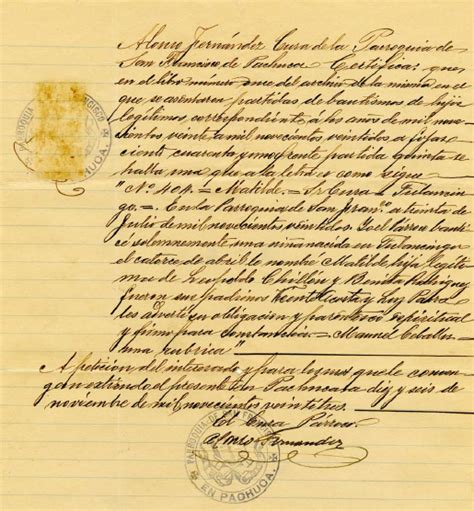 Alonso Fernández Cura de la Parroquia de
San Francisco de Pachuca Certifica: que
en el libro número once del archivo de la misma en el
que se asentaron partidas de bautismos de hijos
legítimos correspondiente a los años de mil nove-
cientos veinte a mil novecientos veintidos a fojas
ciento cuarenta y nueve frente partida quinta se
halla una que a la letra es como sigue
"Nº 404.= Matilde.= Tulancin-
go.= En la Parroquia de San Franco a treinta de
Julio de mil novecientos veintidos. Yo el Párroco bauti-
cé solemnemente una niña nacida en Tulancingo
el catorce de abril de nombre Matilde hija legíti-
ma de Leopoldo Chillón y
fueron sus padrinos Vicente Acosta y Luz
les advertí su obligacion y parentesco espiritual
y firmo para constancia.= Manuel Ceballos
una rubrica"
A peticion del interesado y para los usos que le conven-
gan extiendo el presente en Pachuca a diez y seis de
noviembre de mil novecientos veintitres.
El Cura Párroco
Alonso Fernandez
PARROQUIA DE SAN FRANCISCO
EN PACHUCA.